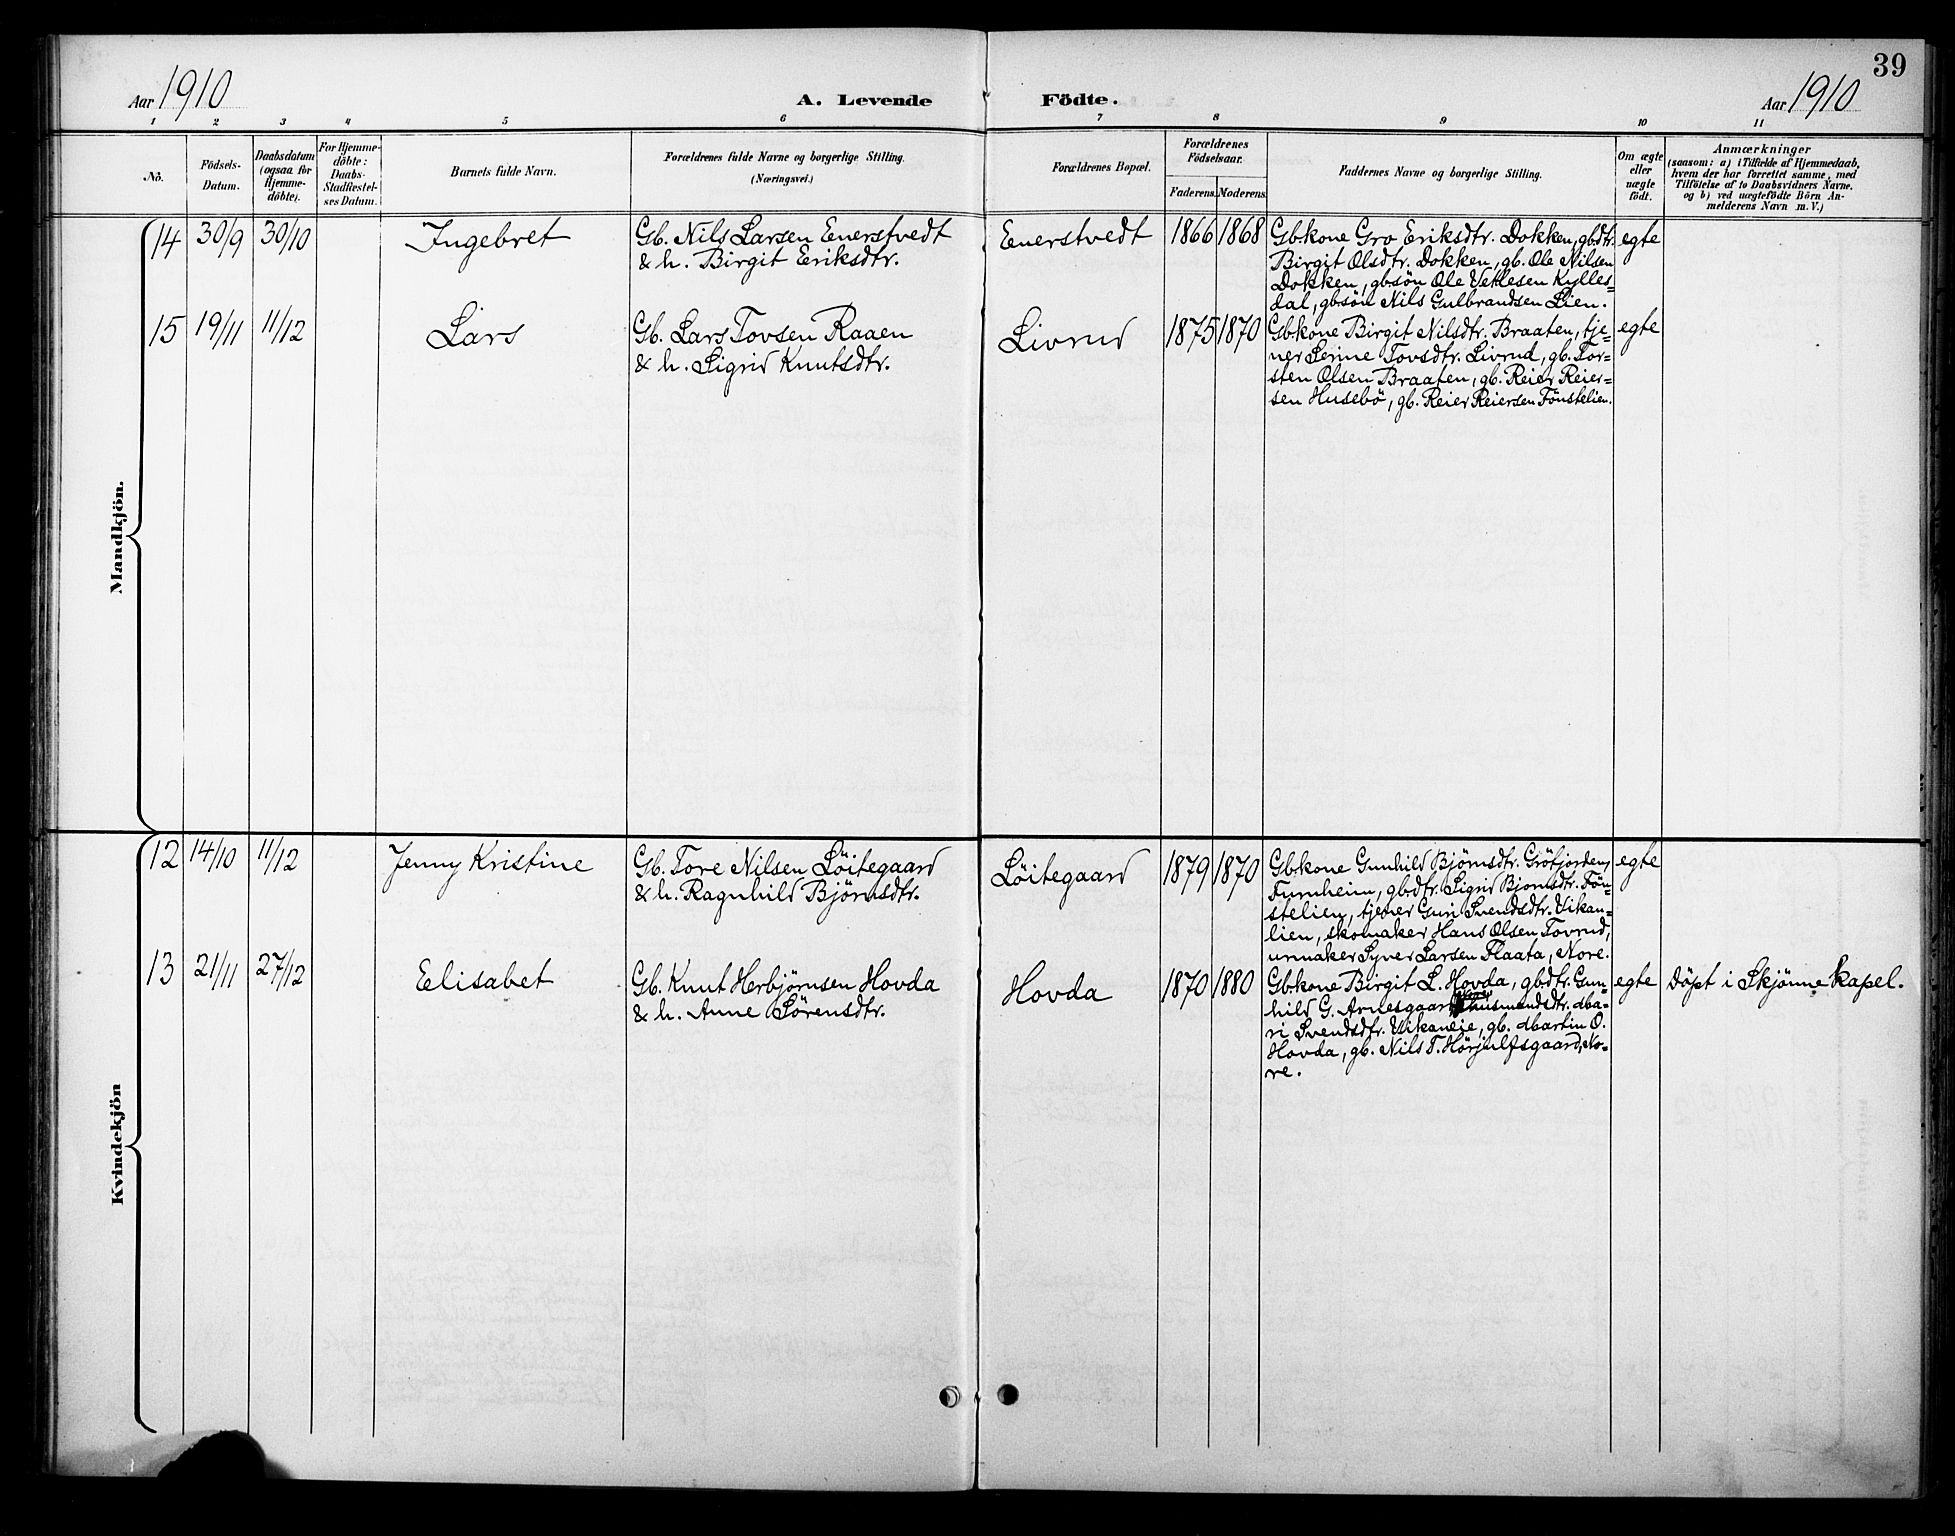 39
Aar 1910
A. Levende Födte.
Aar 1910
1 2 3 4 5 6 7 8 9 10 11
No.
Födsels-
Datum.
Daabsdatum
(ogsaa for
Hjemme-
döbte).
For Hjemme-
döbte:
Daabs-
Stadfæstel-
ses Datum.
Barnets fulde Navn.
Forældrenes fulde Navne og borgerlige Stilling.
(Næringsvei.)
Forældrenes Bopæl.
Forældrenes
Födselsaar.
Faderens. Moderens.
Faddernes Navne og borgerlige Stilling.
Om ægte
eller
uægte
födt.
Anmærkninger
(saasom: a) i Tilfælde af Hjemmedaab,
hvem der har forrettet samme, med
Tilföielse af to Daabsvidners Navne,
og b) ved uægtefödte Börn An-
melderens Navn m. V.)
Mandkjön.
14 30/9 30/10 Ingebret
Gb. Nils Larsen Enerstvedt
& h. Birgit Eriksdtr.
Enerstvedt 1866 1868
Gbkone Gro Eriksdtr. Dokken, gbdtr.
Birgit Olsdtr. Dokken, gb. Ole Nilsen
Dokken, gbsön Ole Vetlesen Kylles-
dal, gbsön Nils Gulbrandsen Lien.
egte
15 19/11 11/12 Lars
Gb. Lars Tovsen Raaen
& h. Sigrid Knutsdtr.
Livrud 1875 1870
Gbkone Birgit Nilsdtr. Braaten, tje-
ner Serine Tovsdtr. Livrud, gb. Tor-
sten Olsen Braaten, gb. Reier Reier-
sen Husebö, gb. Reier Reiersen Fönstelien.
egte
Kvindekjön
12 14/10 11/12 Jenny Kristine
Gb. Tore Nilsen Löitegaard
& h. Ragnhild Björnsdtr.
Löitegaard 1879 1870
Gbkone Gunhild Björnsdtr. Gröfjorden,
Furnheim, gbdtr. Sigrid Bjornsdtr. Fön-
stelien, tjener Guri Svendsdtr. Vikan-
lien, skomaker Hans Olsen Tovrud,
urmaker Syver Larsen Flaata, Nore.
egte
13 21/11 27/12 Elisabet
Gb. Knut Herbjörnsen Hovda
& h. Anne Sörensdtr.
Hovda 1870 1880
Gbkone Birgit L. Hovda, gbdtr. Gun-
hild G. Arnesgaard, husmandsdtr. Ma-
ri Svendsdtr. Vikaneie, gb. Martin O.
Hovda, gb. Nils T. Hörjulfsgaard, No-
re.
egte
Döpt i Skjönne kapel.